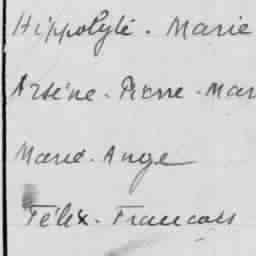 Hippolyte. Marie
Arsène. Pierre. Mar
Marie. Ange
Félix. Francois